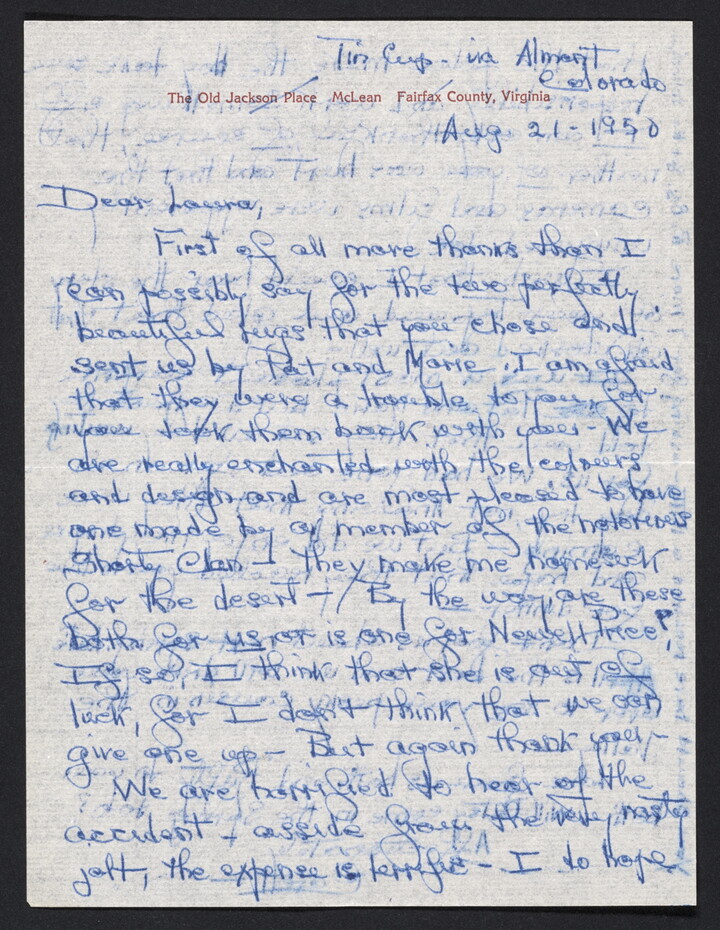 Tin Cup - via Almont
Colorado
The Old Jackson Place McLean Fairfax County, Virginia
Aug 21 - 1950
Dear Laura,
First of all more thanks than I
can possibly say for the two perfectly
beautiful rugs that you chose and
sent us by Pat and Marie. I am afraid
that they were a trouble to you, for
you took them back with you - We
are really enchanted with the colours
and design and are most pleased to have
one made by a member of the notorious
Shorty Clan - They make me homesick
for the desert - By the way are these
both for us or is one for Newell Price?
If so, I think that she is out of
luck, for I don't think that we can
give one up - But again thank you -
We are horrified to hear of the
accident - asside from the very nasty
jolt, the expense is terrific - I do hope